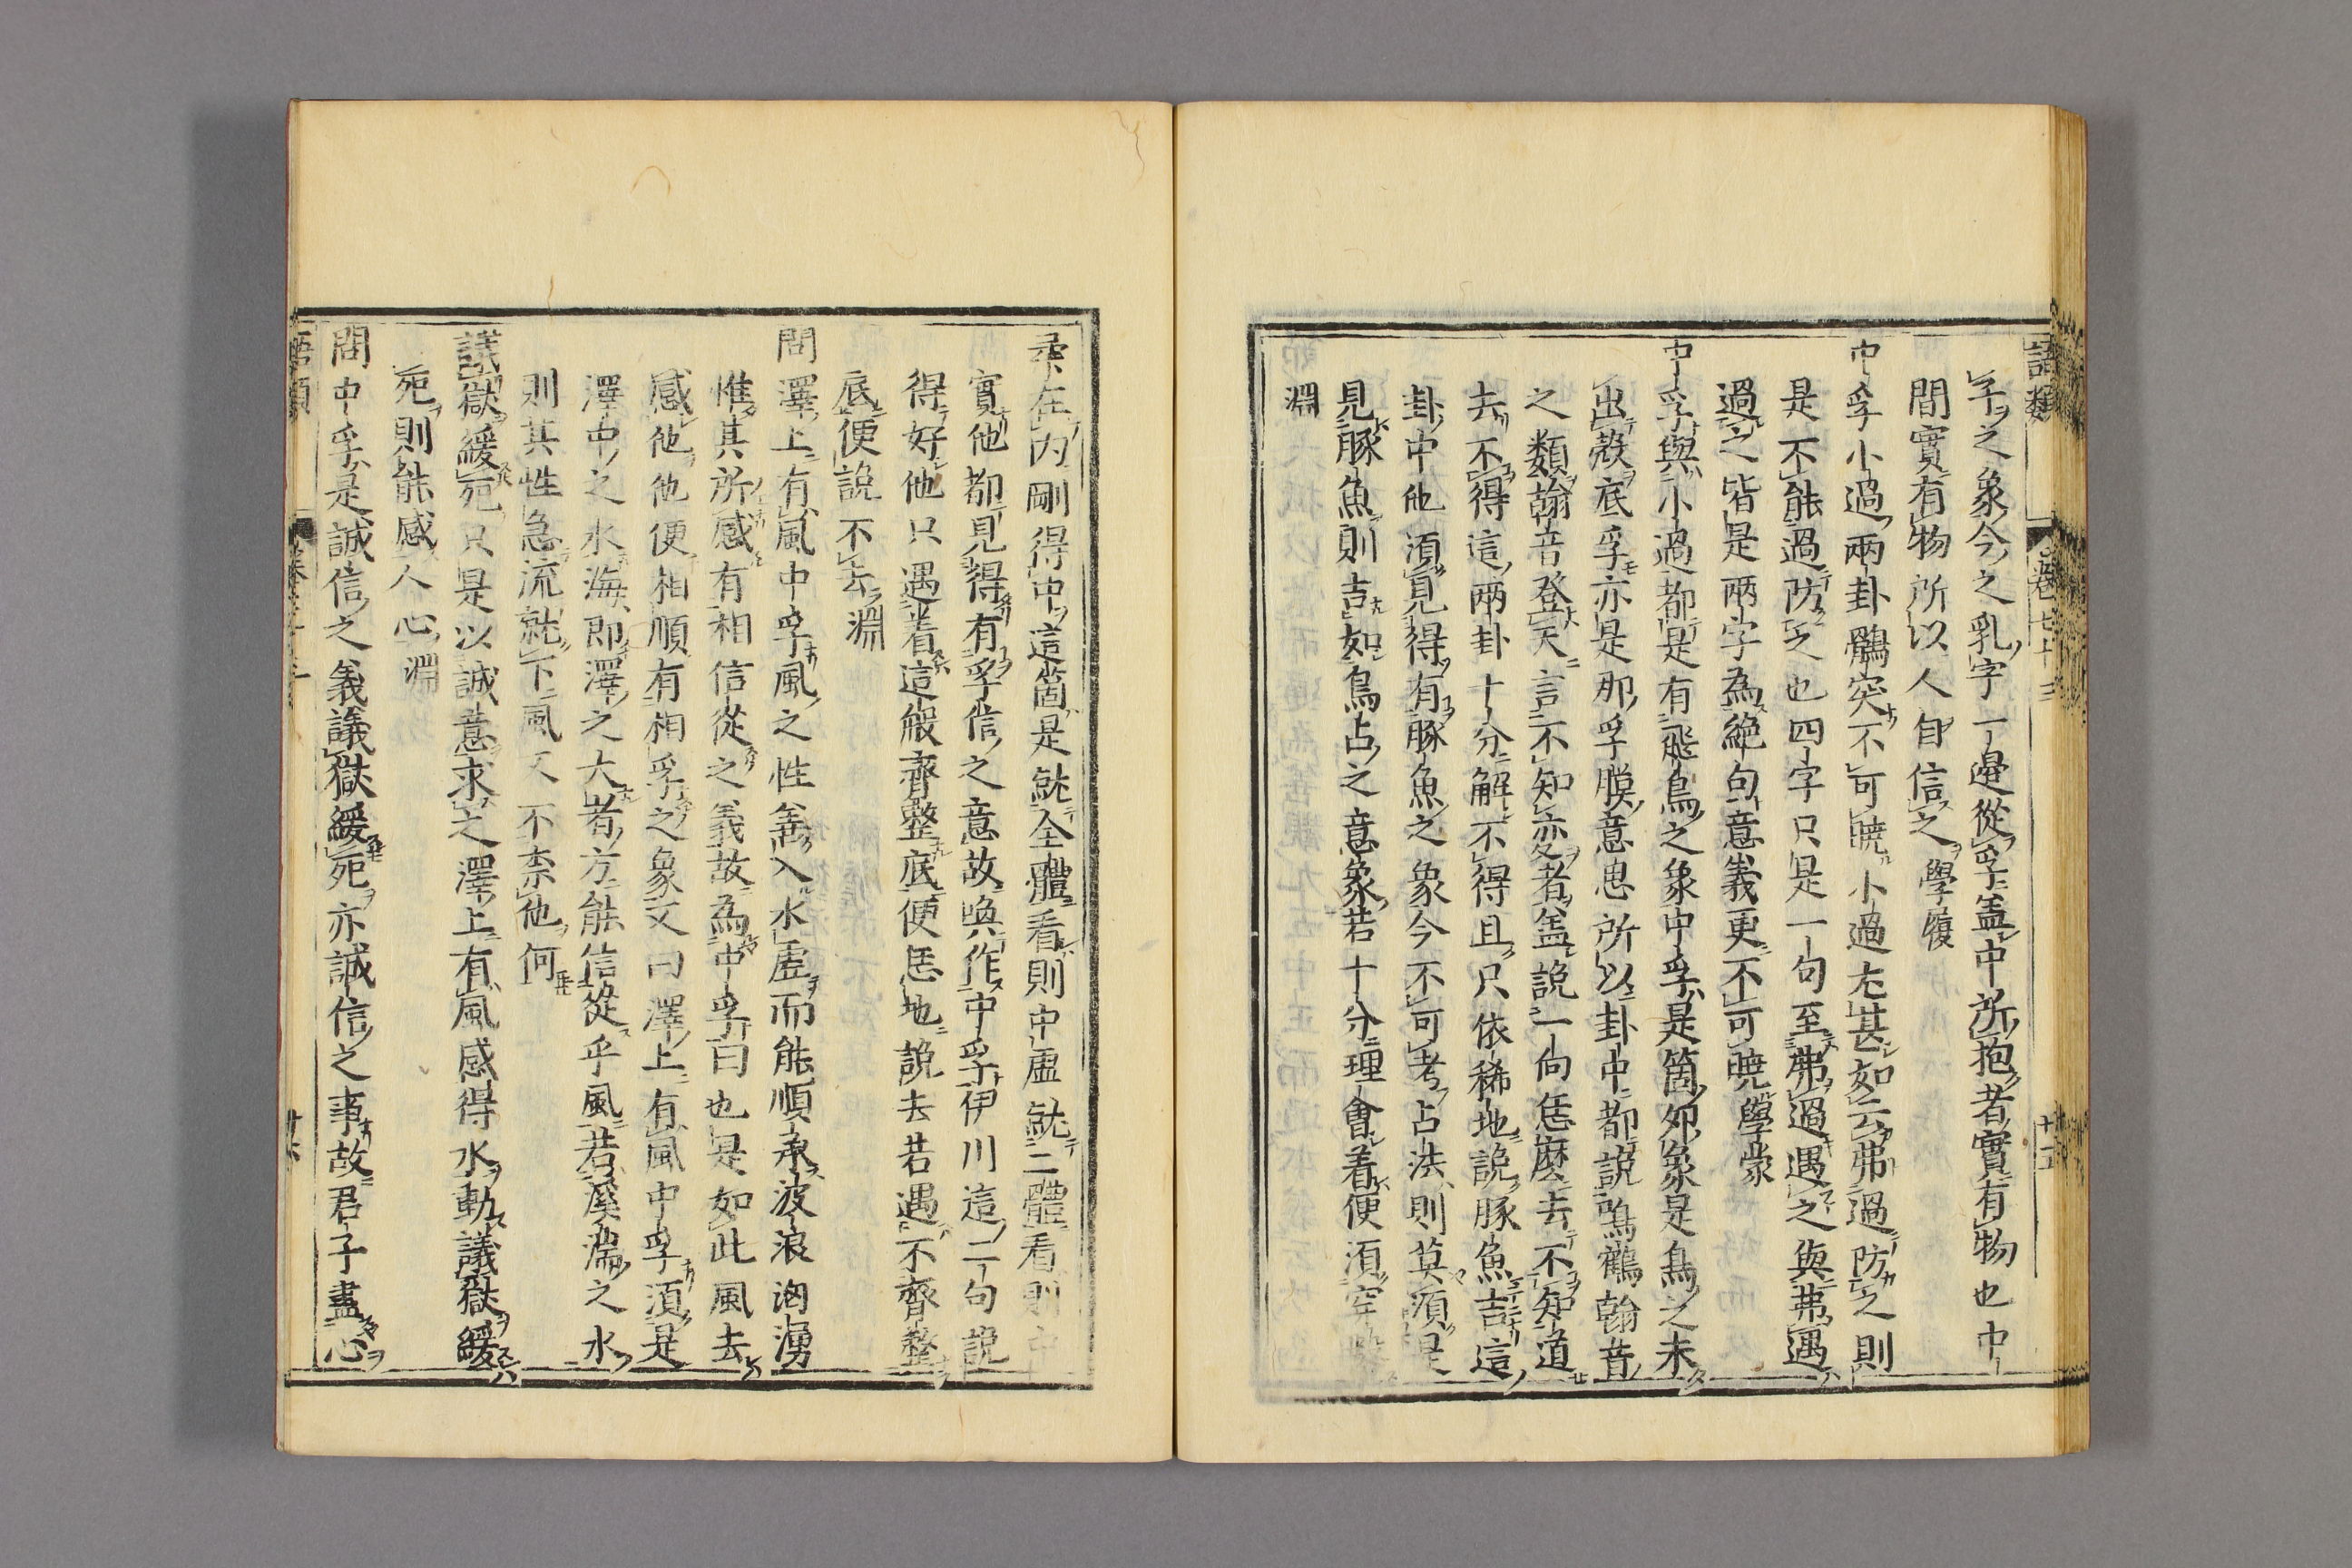 語類 卷七十三
子之象今之乳字一邊從孚盖中所抱者實有物也中
間實有物所以人自信之學履
中孚小過兩卦鶻突不可曉小過尤甚如云弗過防之則
是不能過防之也四字只是一句至弗過遇之與弗遇
過之皆是兩字為絶句意義更不可曉學蒙
中孚與小過都是有飛鳥之象中孚是箇夘象是鳥之未
出殼底孚亦是那孚膜意思所以卦中都說鳴鶴翰音
之類翰音登天言不知変者盖說一向恁麼去不知道
去不得這兩卦十分解不得且只依稀地說豚魚吉這
卦中他須見得有豚魚之象今不可考占法則莫須是
見豚魚則吉如鳥占之意象若十分理會着便須穿
淵
柔在内剛得中這箇是就全體看則中虛就二體看則中
實他都見得有孚信之意故喚作中孚伊川這二句說
得好他只遇着這般齊整底便恁地說去若遇不齊整
底便說不去淵
問澤上有風中孚風之性善入水虛而能順承波浪洶湧
惟其所感有相信從之義故為中孚曰也是如此風去
感他他便相順有相孚之象又曰澤上有風中孚須是
澤中之水海即澤之大者方能信從乎風若溪湍之水
則其性急流就下風又不柰他何
議獄緩死只是以誠意求之澤上有風感得水動議獄緩
死則能感人心淵
問中孚是誠信之義議獄緩死亦誠信之事故君子盡心